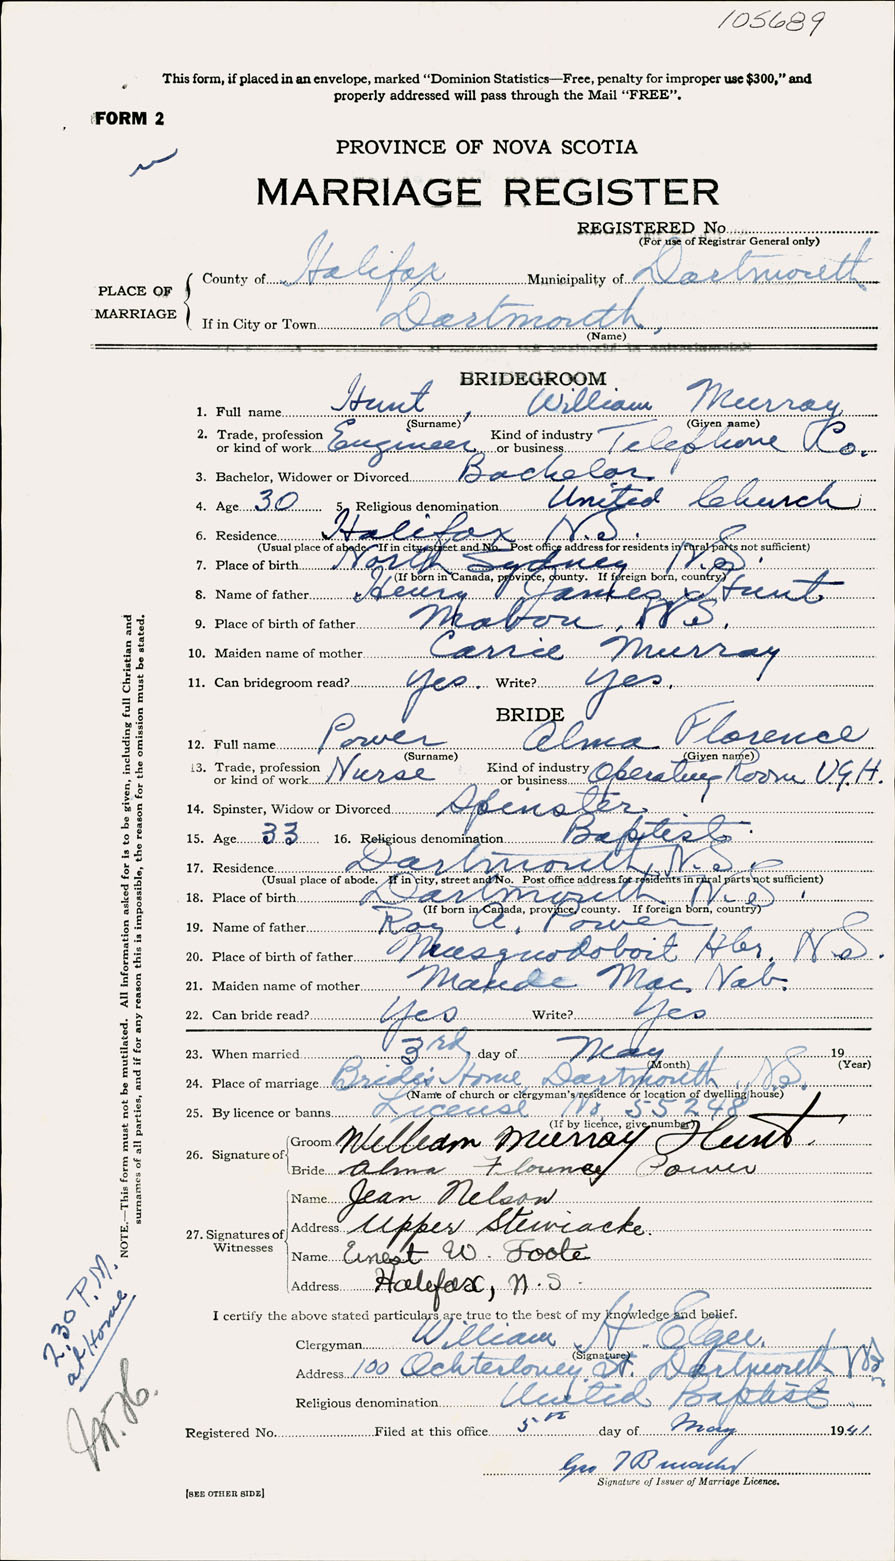 105689
This form, if placed in an envelope, marked "Dominion Statistics—Free, penalty for improper use $300," and
properly addressed will pass through the Mail "FREE".
FORM 2
PROVINCE OF NOVA SCOTIA
MARRIAGE REGISTER
REGISTERED No.
(For use of Registrar General only)
PLACE OF MARRIAGE
County of Halifax Municipality of Dartmouth
If in City or Town Dartmouth,
(Name)
BRIDEGROOM
1. Full name Hunt, William Murray
(Surname) (Given name)
2. Trade, profession or kind of work Engineer Kind of industry or business Telephone Co.
3. Bachelor, Widower or Divorced Bachelor
4. Age 30 5. Religious denomination United Church
6. Residence Halifax N.S.
(Usual place of abode. If in city, street and No. Post office address for residents in rural parts not sufficient)
7. Place of birth North Sydney N.S.
(If born in Canada, province, county. If foreign born, country)
8. Name of father Henry James Hunt
9. Place of birth of father Mabou, N.S.
10. Maiden name of mother Carrie Murray
11. Can bridegroom read? Yes. Write? Yes.
BRIDE
12. Full name Power Alma Florence
(Surname) (Given name)
13. Trade, profession or kind of work Nurse Kind of industry or business Operating Room V.G.H.
14. Spinster, Widow or Divorced Spinster
15. Age 33 16. Religious denomination Baptist
17. Residence Dartmouth, N.S.
(Usual place of abode. If in city, street and No. Post office address for residents in rural parts not sufficient)
18. Place of birth Dartmouth N.S.
(If born in Canada, province, county. If foreign born, country)
19. Name of father Roy A. Power
20. Place of birth of father Musquodoboit Hbr. N.S.
21. Maiden name of mother Maude Mac Nab.
22. Can bride read? Yes Write? Yes
23. When married 3rd day of May 19
(Month) (Year)
24. Place of marriage Bride's Home, Dartmouth, N.S.
(Name of church or clergyman's residence or location of dwelling house)
25. By licence or banns License No. 55248
(If by licence, give number)
26. Signature of Groom William Murray Hunt.
Bride Alma Florence Power
27. Signatures of Witnesses
Name Jean Nelson
Address Upper Stewiacke.
Name Ernest W. Foote
Address Halifax, N.S.
I certify the above stated particulars are true to the best of my knowledge and belief.
Clergyman William H. Elgee.
(Signature)
Address 100 Ochterloney St. Dartmouth NS
Religious denomination United Baptist
Registered No. Filed at this office 5th day of May 1941
Geo
Signature of Issuer of Marriage Licence.
[SEE OTHER SIDE]
NOTE.—This form must not be mutilated. All information asked for is to be given, including full Christian and
surnames of all parties, and if for any reason this is impossible, the reason for the omission must be stated.
2.30 P.M.
at Home